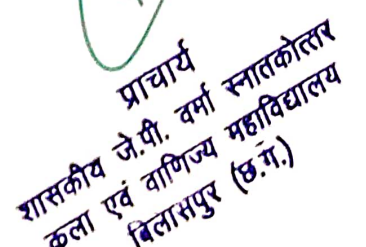 प्राचार्य
शासकीय जे.पी. वर्मा स्नातकोत्तर
कला एवं वाणिज्य महाविद्यालय
बिलासपुर (छ.ग.)